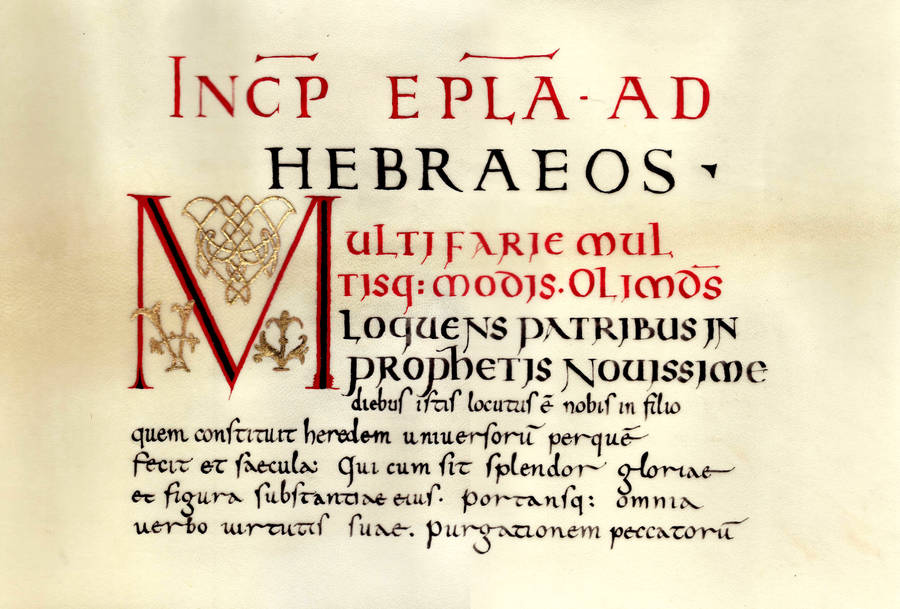 INCP̄ EPL̄A · AD
HEBRAEOS
MULTIFARIE MUL
TISQ: MODIS. OLIM D̄S
LOQUENS PATRIBUS IN
PROPHETIS NOUISSIME
diebus istis locutus ē nobis in filio
quem constituit heredem uniuersorū perquē
fecit et saecula: Qui cum sit splendor gloriae
et figura substantiae eius. portansq: omnia
uerbo uirtutis suae. purgationem peccatorū